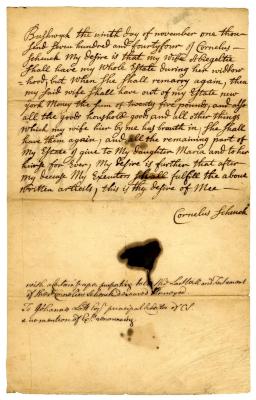 Bushwyk the ninth day of november one thou
sand seven hundred and fourtyfour I Cornelius
Schenck My desire is that my wife Abiegeltie
Shall have my whole Estate during her widdow
hood; but when she shall remarry again, then
my said wife shall have out of my Estate new
york Money the sum of twenty five pounds, and also
all the goods houshold goods and all other things
which my wife her by me has brouth in; she shall
have them again; and all the remaining part of
My Estate I give to My daughter Maria and to her
heirs for Ever; My desire is further that after
my decease My Executors shall fulfill the above
written articles; this is thy desire of Mee
Cornelius Schenck
with a certain paper purporting to be the Last Will and Testament
of Cornelius Schenck deceased
To Johannes Lott Esqr principal
no mention of Exrs